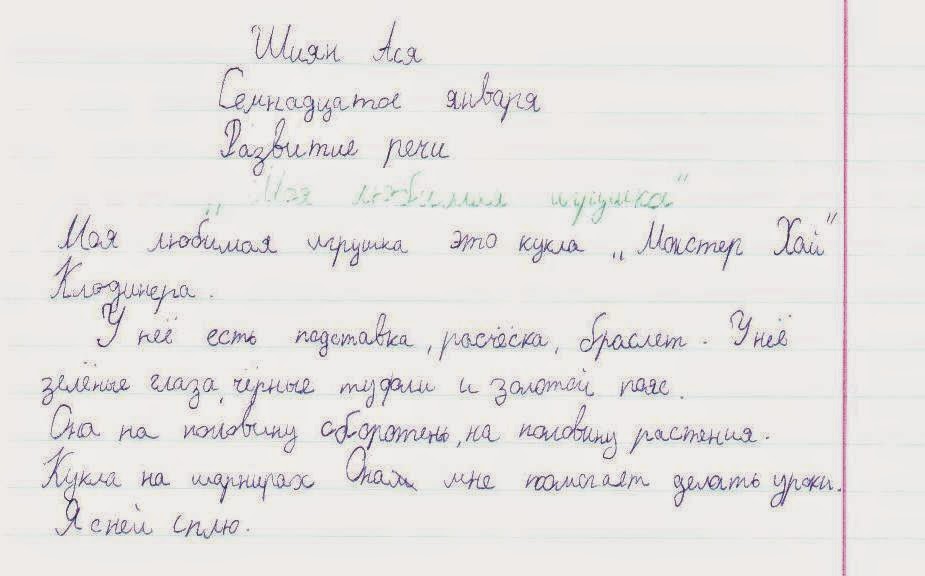 Шиян Ася
Семнадцатое января
Развитие речи
„Моя любимая игрушка"
Моя любимая игрушка это кукла „Монстер Хай"
Клодинера.
У неё есть подставка, расчёска, браслет. У неё
зелёные глаза, чёрные туфли и золотой пояс.
Она на половину оборотень, на половину растения.
Кукла на шарнирах Она мне помогает делать уроки.
Я с ней сплю.